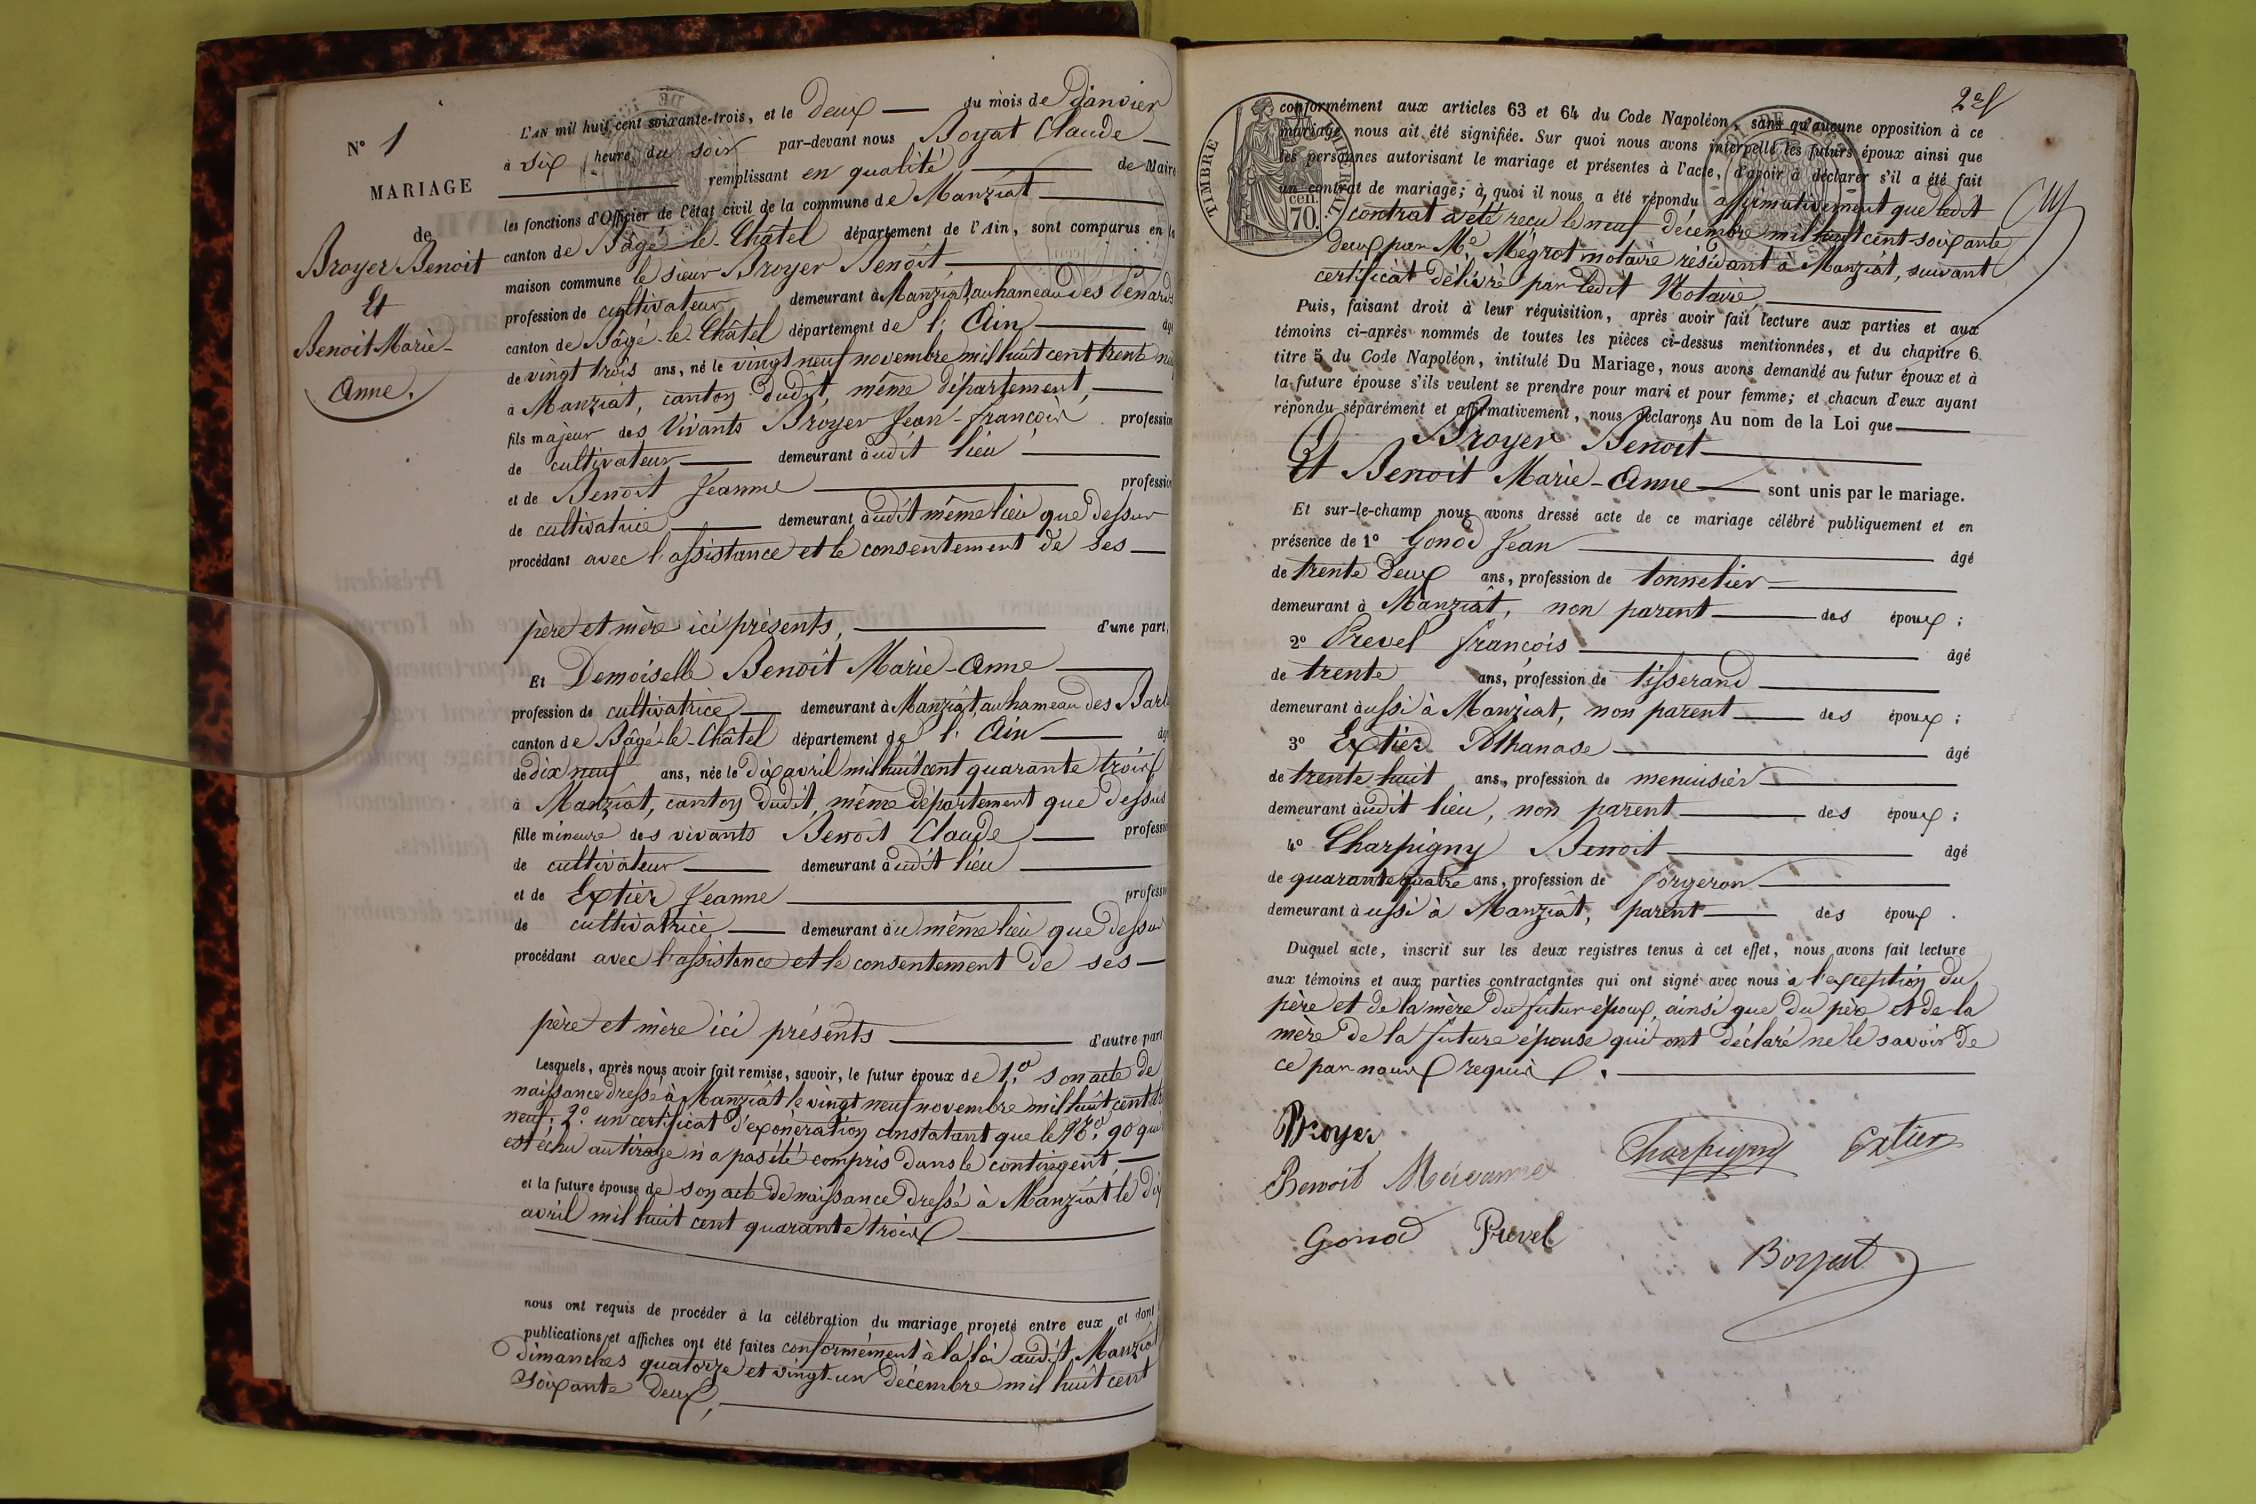 N° 1
MARIAGE
de
Broyer Benoit
Et
Benoit Marie-
Anne.
L'AN mil huit cent soixante-trois, et le Deux du mois de Janvier
à six heure du soir par-devant nous Boyat Claude
remplissant en qualité de Maire
les fonctions d'Officier de l'état civil de la commune de Manziat
canton de Bâgé-le-Châtel département de l'Ain, sont comparus en la
maison commune le sieur Broyer Benoit
profession de cultivateur demeurant à Manziat, au hameau des Bénards
canton de Bâgé-le-Châtel département de l'Ain âgé
de vingt trois ans, né le vingt neuf novembre mil huit cent trente neuf
à Manziat, canton dudit, même département,
fils majeur des vivants Broyer Jean-François profession
de cultivateur demeurant audit lieu
et de Benoit Jeanne profession
de cultivatrice demeurant audit même lieu que dessus
procédant avec l'assistance et le consentement de ses
père et mère ici présents, d'une part,
Et Demoiselle Benoit Marie-Anne
profession de cultivatrice demeurant à Manziat, au hameau des
canton de Bâgé-le-Châtel département de l'Ain âgé
de dix neuf ans, née le dix avril mil huit cent quarante trois
à Manziat, canton dudit, même département que dessus
fille mineure des vivants Benoit Claude profession
de cultivateur demeurant audit lieu
et de Extier Jeanne profession
de cultivatrice demeurant au même lieu que dessus
procédant avec l'assistance et le consentement de ses
père et mère ici présents d'autre part
Lesquels, après nous avoir fait remise, savoir, le futur époux de 1.° son acte de
naissance dressé à Manziat le vingt neuf novembre mil huit cent
neuf; 2.° un certificat d'exonération constatant que le N.° 90 qui
est échu au tirage n'a pas été compris dans le contingent,
et la future épouse de son acte de naissance dressé à Manziat le dix
avril mil huit cent quarante trois
nous ont requis de procéder à la célébration du mariage projeté entre eux et dont
publications et affiches ont été faites conformément à la loi audit Manziat
dimanches quatorze et vingt-un décembre mil huit cent
soixante deux,
2e f
TIMBRE IMPÉRIAL
70 cen.
conformément aux articles 63 et 64 du Code Napoléon, sans qu'aucune opposition à ce
mariage nous ait été signifiée. Sur quoi nous avons interpellé les futurs époux ainsi que
les personnes autorisant le mariage et présentes à l'acte, d'avoir à déclarer s'il a été fait
un contrat de mariage; à quoi il nous a été répondu affirmativement que ledit
contrat a été reçu le neuf décembre mil huit cent soixante
deux par Me Mégrot notaire résidant à Manziat, suivant
certificat délivré par ledit Notaire,
Puis, faisant droit à leur réquisition, après avoir fait lecture aux parties et aux
témoins ci-après nommés de toutes les pièces ci-dessus mentionnées, et du chapitre 6
titre 5 du Code Napoléon, intitulé Du Mariage, nous avons demandé au futur époux et à
la future épouse s'ils veulent se prendre pour mari et pour femme; et chacun d'eux ayant
répondu séparément et affirmativement, nous déclarons Au nom de la Loi que
Broyer Benoit
Et Benoit Marie-Anne sont unis par le mariage.
Et sur-le-champ nous avons dressé acte de ce mariage célébré publiquement et en
présence de 1° Gonod Jean âgé
de trente deux ans, profession de tonnelier
demeurant à Manziat, non parent des époux;
2° Prevel François âgé
de trente ans, profession de tisserand
demeurant aussi à Manziat, non parent des époux;
3° Extier Athanase âgé
de trente huit ans, profession de menuisier
demeurant audit lieu, non parent des époux;
4° Charpigny Benoit âgé
de quarante quatre ans, profession de forgeron
demeurant aussi à Manziat, parent des époux.
Duquel acte, inscrit sur les deux registres tenus à cet effet, nous avons fait lecture
aux témoins et aux parties contractantes qui ont signé avec nous à l'exception du
père et de la mère du futur époux, ainsi que du père et de la
mère de la future épouse qui ont déclaré ne le savoir de
ce par nous requis.
Broyer
Charpigny
Extier
Benoit Marianne
Gonod
Prevel
Boyat